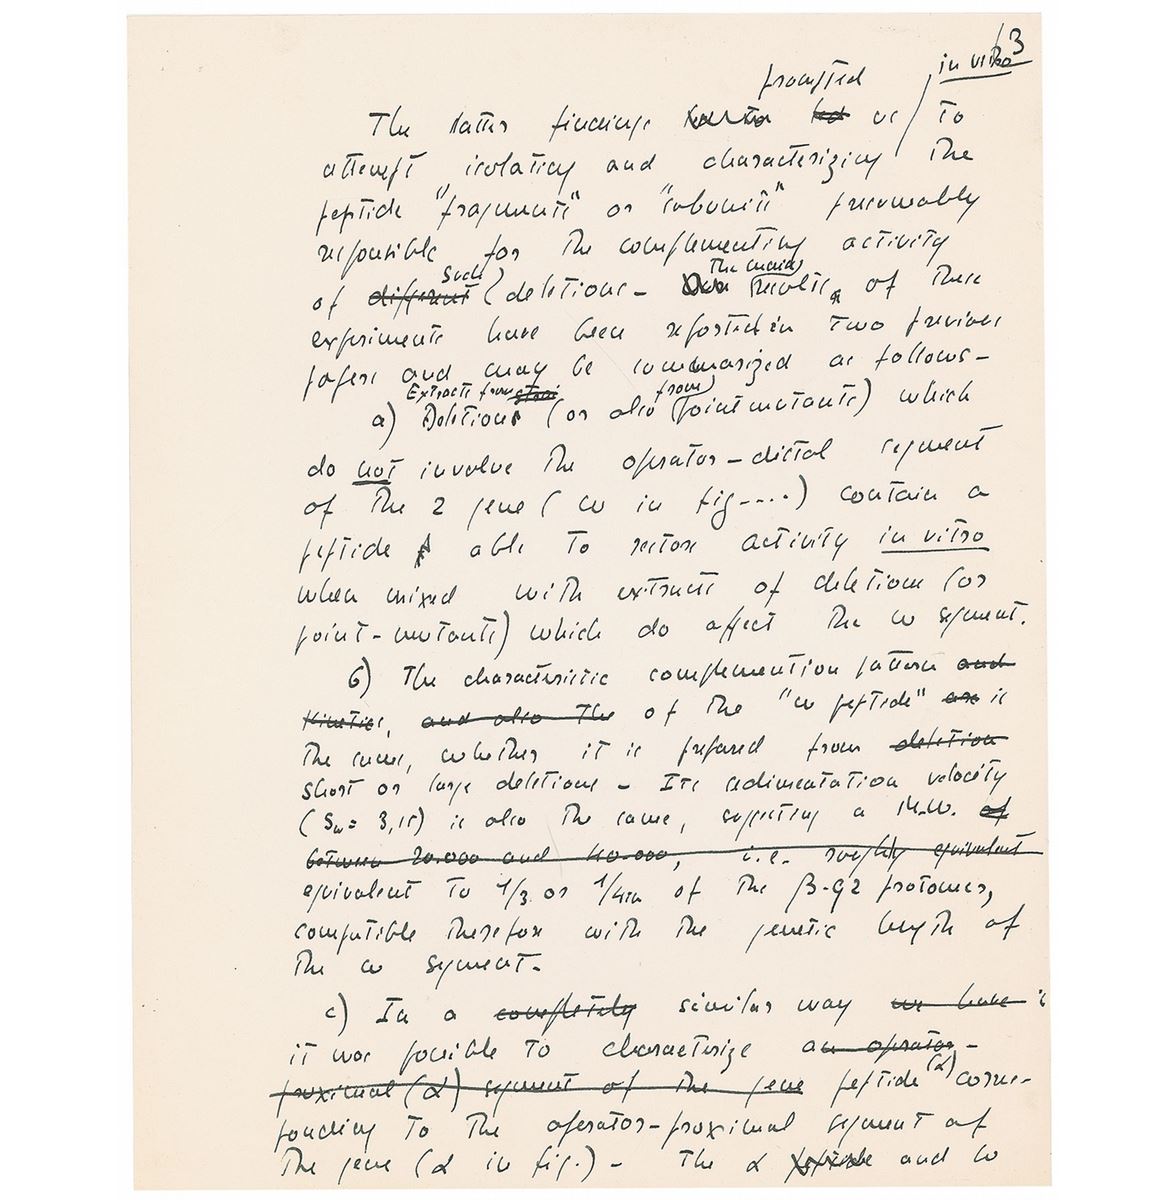 3
prompted in vitro
The latter findings led us to
attempt isolating and characterizing the
peptide "fragments" or "subunits" presumably
responsible for the complementing activity
such the main
of different deletions - Our results of these
experiments have been reported in two previous
papers and may be summarized as follows -
Extracts from strai from
a) Deletions (or also point mutants) which
do not involve the operator-distal segment
of the z gene (ω in fig....) contain a
peptide able to restore activity in vitro
when mixed with extracts of deletions (or
point-mutants) which do affect the ω segment.
b) The characteristic complemention pattern and
kinetics, and also the of the "ω peptide" are is
the same, whether it is prepared from deletion
short or large deletions - Its sedimentation velocity
(Sw = 3,1S) is also the same, suggesting a M.W. of
between 20.000 and 40.000, i.e. roughly equivalent
equivalent to 1/3 or 1/4th of the β-gz protomer,
compatible therefore with the genetic length of
the ω segment.
c) In a completely similar way we have
it was possible to characterize an operator-
proximal (α) segment of the gene peptide (α) corres-
ponding to the operator-proximal segment of
the gene (α in fig.) - The α peptide and ω